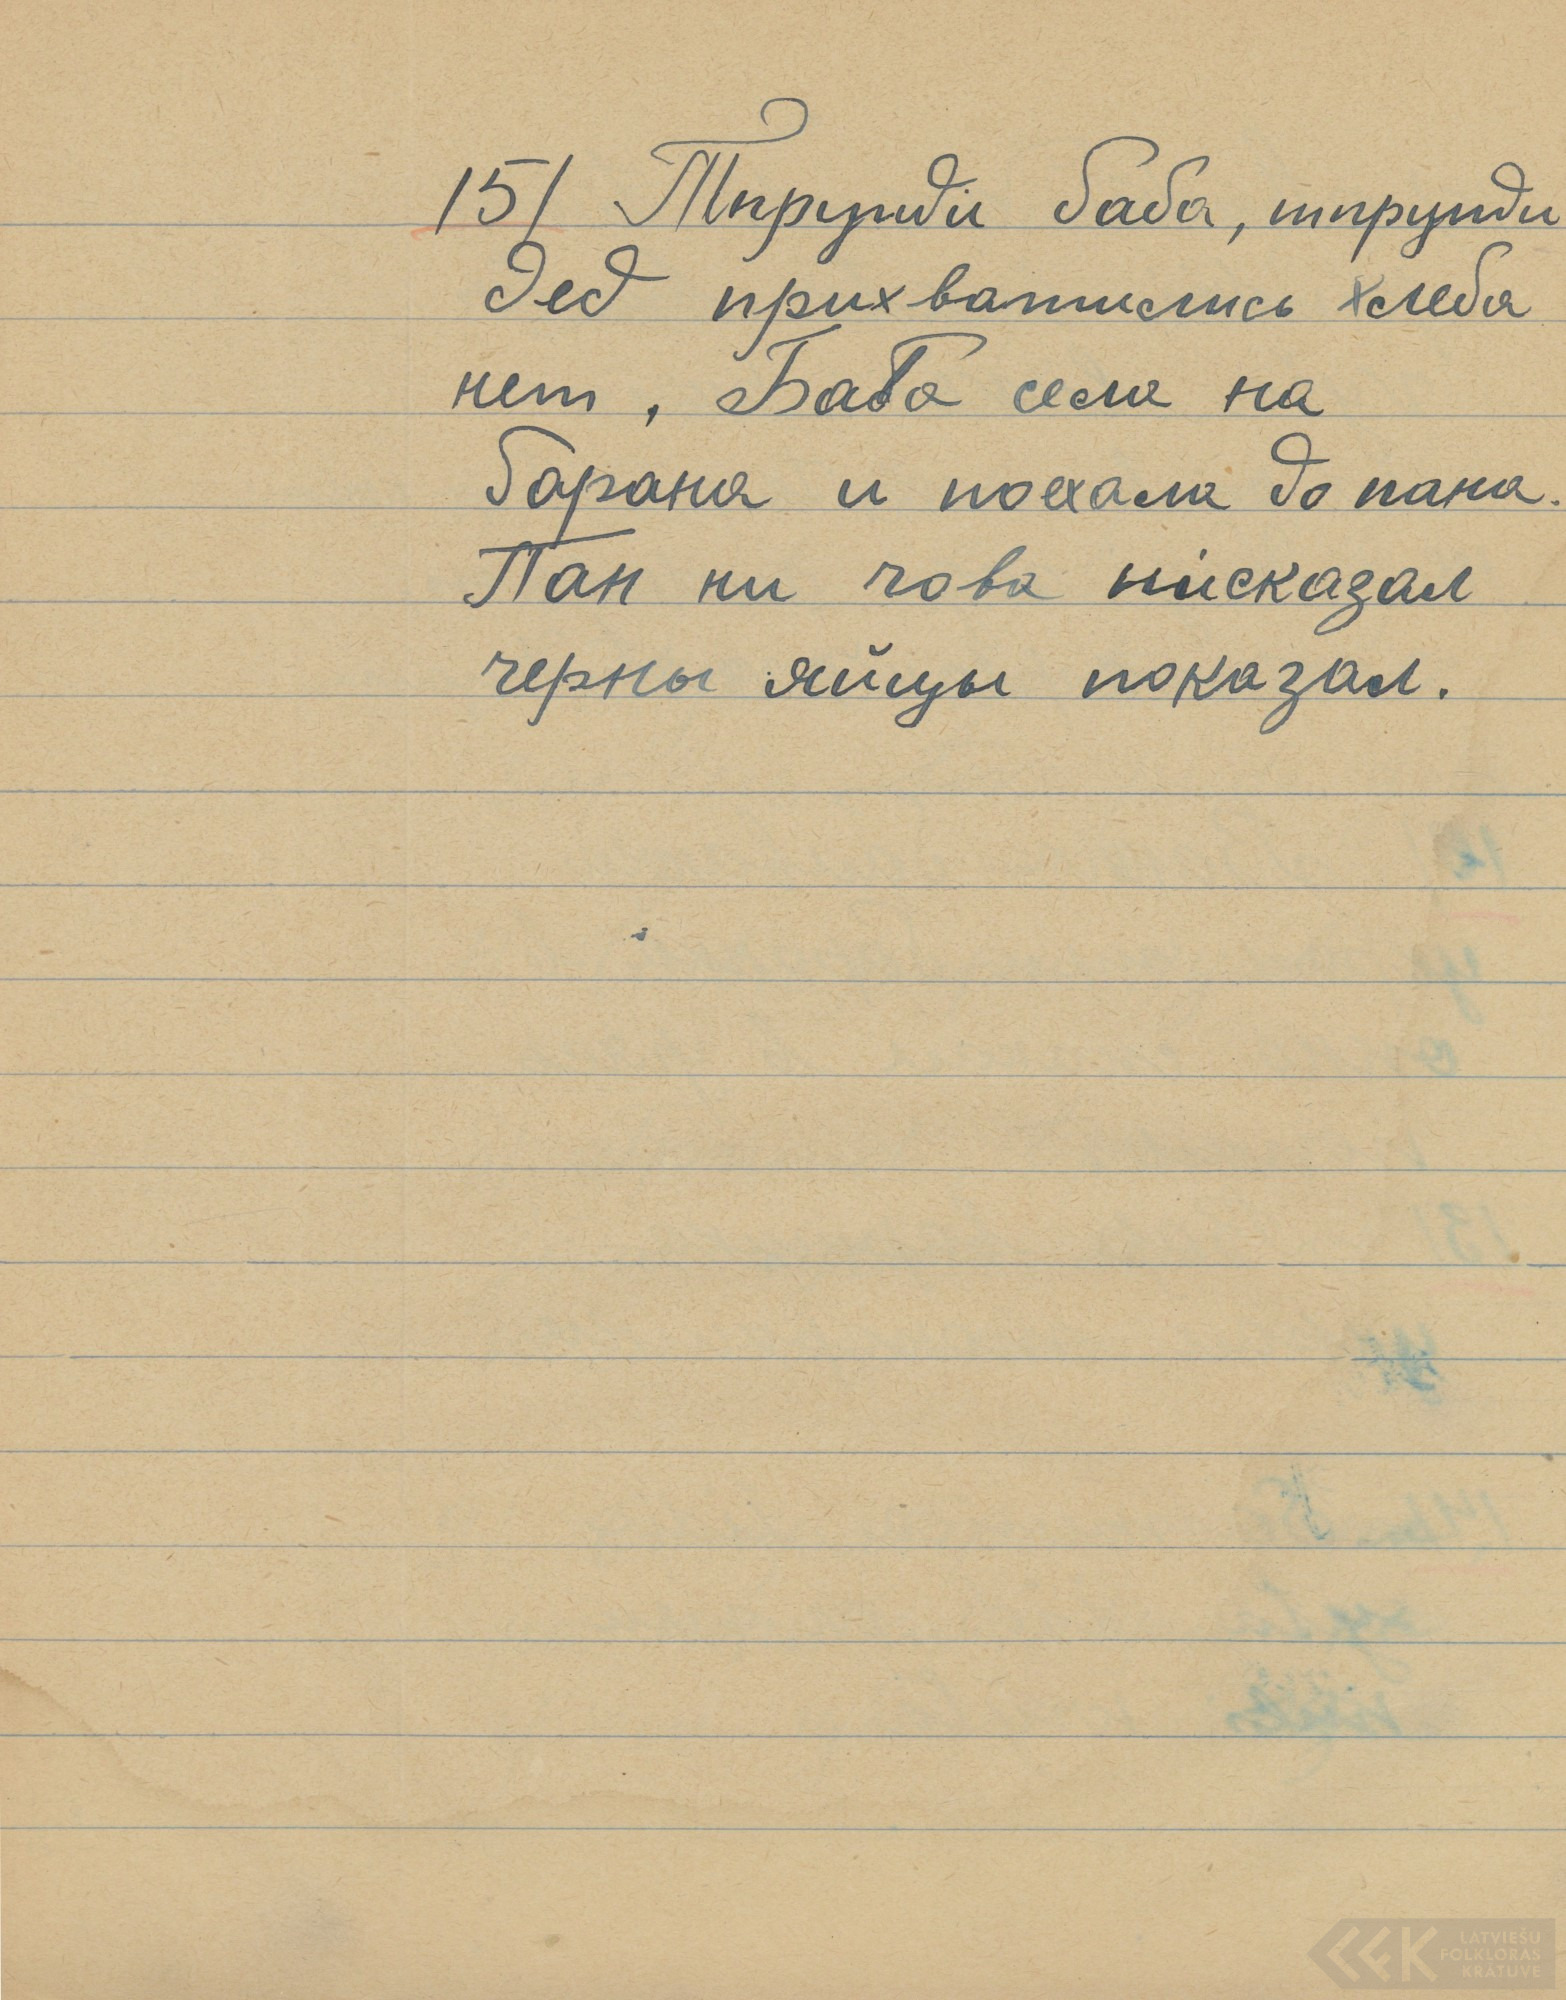 15/ Тпрунди баба, тпрунди
дед прихватились хлеба
нет, Баба села на
барана и поехала до пана.
Пан ни чова нисказал
черны яйцы показал.
LATVIEŠU
FOLKLORAS
KRĀTUVE